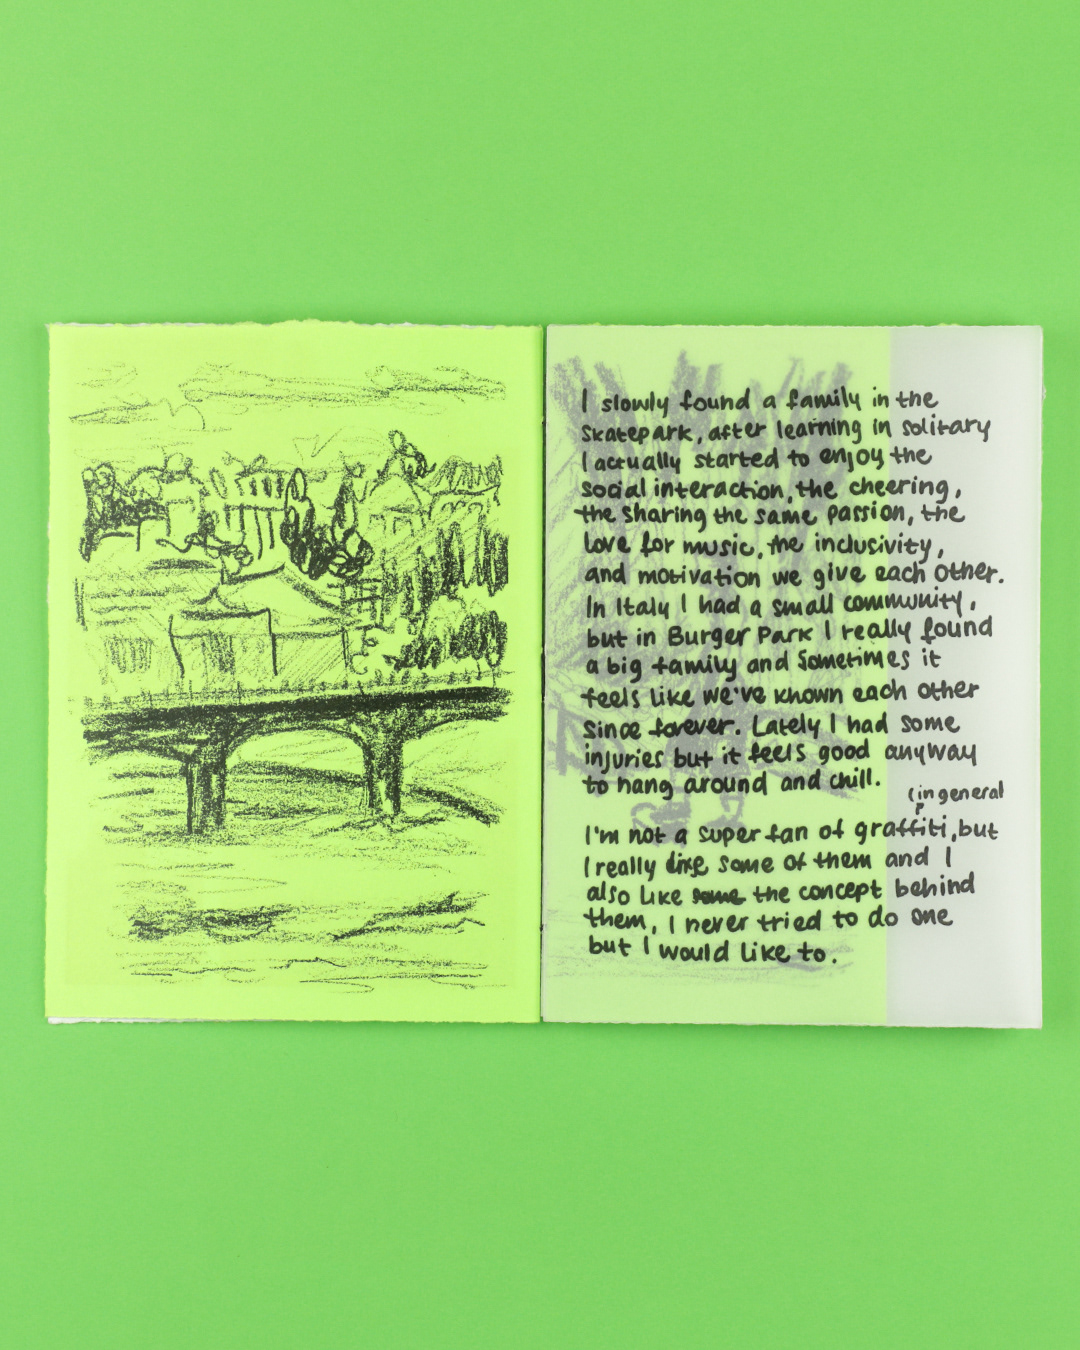 I slowly found a family in the
skatepark, after learning in solitary
I actually started to enjoy the
social interaction, the cheering,
the sharing the same passion, the
love for music, the inclusivity,
and motivation we give each other.
In Italy I had a small community,
but in Burger Park I really found
a big family and Sometimes it
feels like we've known each other
since forever. Lately I had some
injuries but it feels good anyway
to hang around and chill.
(in general
I'm not a super fan of graffiti, but
I really like some of them and I
also like some the concept behind
them, I never tried to do one
but I would like to.